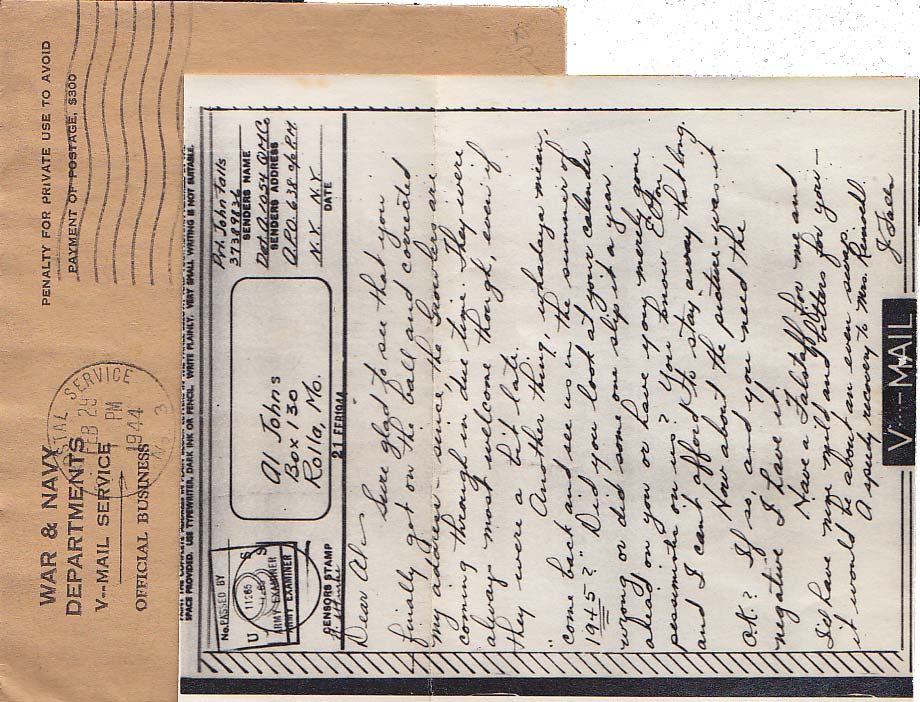 WAR & NAVY
DEPARTMENTS
V--MAIL SERVICE
OFFICIAL BUSINESS
PENALTY FOR PRIVATE USE TO AVOID
PAYMENT OF POSTAGE, $300
POSTAL SERVICE
FEB 29
1 PM
1944
SPACE PROVIDED. USE TYPEWRITER, DARK INK OR PENCIL. WRITE PLAINLY. VERY SMALL WRITING IS NOT SUITABLE.
No.
PASSED BY
U S
11265
ARMY EXAMINER
ARMY EXAMINER
CENSORS STAMP
Al Johns
Box 130
Rolla, Mo.
21 FEB 1944
Pvt. John Falls
37389836
SENDERS NAME
Det A 105 QMC
SENDERS ADDRESS
A.P.O. 638 % P.M.
N.Y. N.Y.
DATE
Dear Al—
Sure glad to see that you
finally got on the ball and corrected
my address - since the Growlers are
coming through in due time. They were
always most welcome though, even if
they were a bit late.
Another thing, whadaya mean,
"come back and see us in the summer of
1945"? Did you look at your calender
wrong or did some one slip it a year
ahead on you or have you merely gone
pessimistic on us? You know Elton
and I can't afford to stay away that long.
Now about the picture - was it
O.K.? If so, and you need the
negative I have it.
Have a Falstaff for me and
I'll have more mild and bitters for you -
it would be about an even swap.
A speedy recovery to Mrs. Remell
Jack
V--MAIL